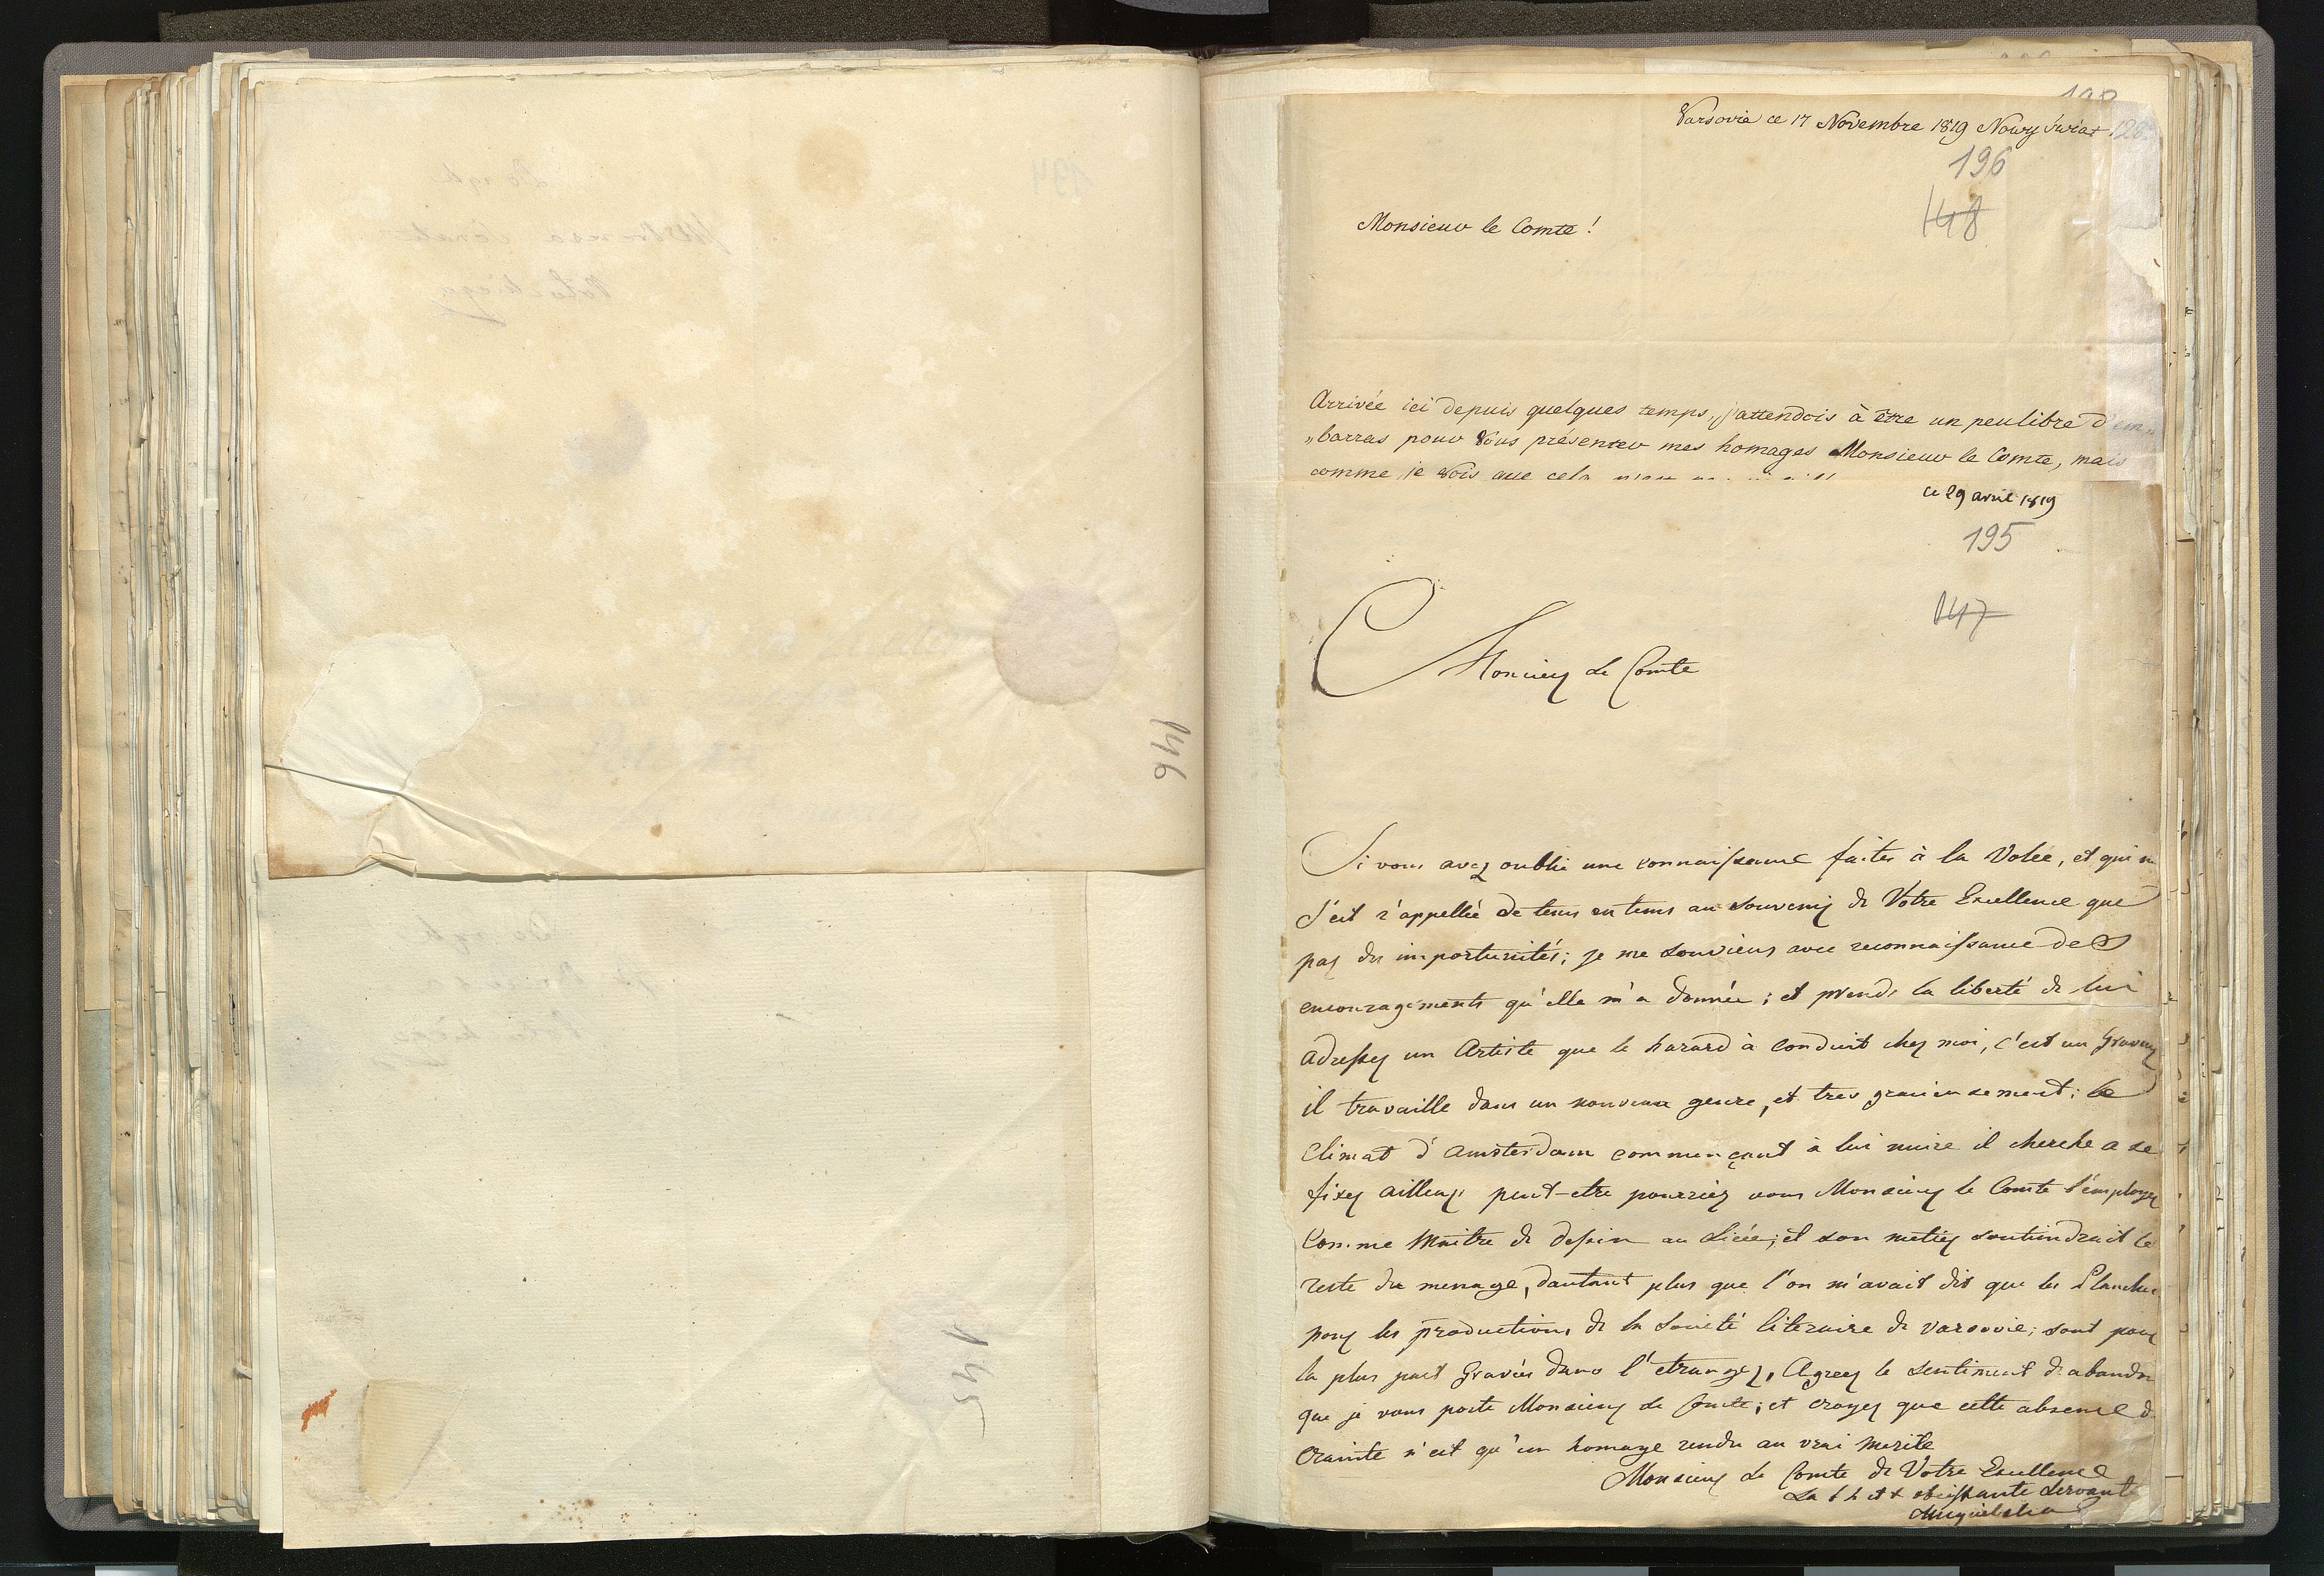 146
145
Varsovie ce 17 Novembre 1819 Nowy Świat 128
196
148
Monsieur le Comte!
Arrivée ici depuis quelques temps, j'attendois à être un peu libre d'em„
„barras pour Vous présenter mes homages Monsieur le Comte, mais
comme je vois que cela
ce 29 avril 1819
195
147
Monsieur Le Comte
Si vous avez oublié une connaissance faites à la Volée, et qui n
s'est r'appellée de tems en tems au souvenir de Votre Excellence que
par des importunités; je me souviens avec reconnaissance des
encouragements qu'elle m'a donnée; et prends la liberté de lui
adresser un Artiste que le hazard à conduit chez moi, c'est un Graveur
il travaille dans un nouveau genre, et tres gracieusement; le
Climat d'Amsterdam commençant à lui nuire il cherche a se
fixer ailleurs peut-etre pourriez vous Monsieur le Comte l'employer
Comme Maitre de dessin au Licée; et son metier soutiendrait le
reste du menage, dautant plus que l'on m'avait dit que les Planches
pour les productions de la Societé literaire de Varsovie; sont pour
la plus part Gravées dans l'etranger, Agreez le sentiment d'abandon
que je vous porte Monsieur Le Comte; et croyez que cette absence d
Crainte n'est qu'un homage rendu au vrai merite
Monsieur Le Comte de Votre Excellence
La t h et t obeissante Servante